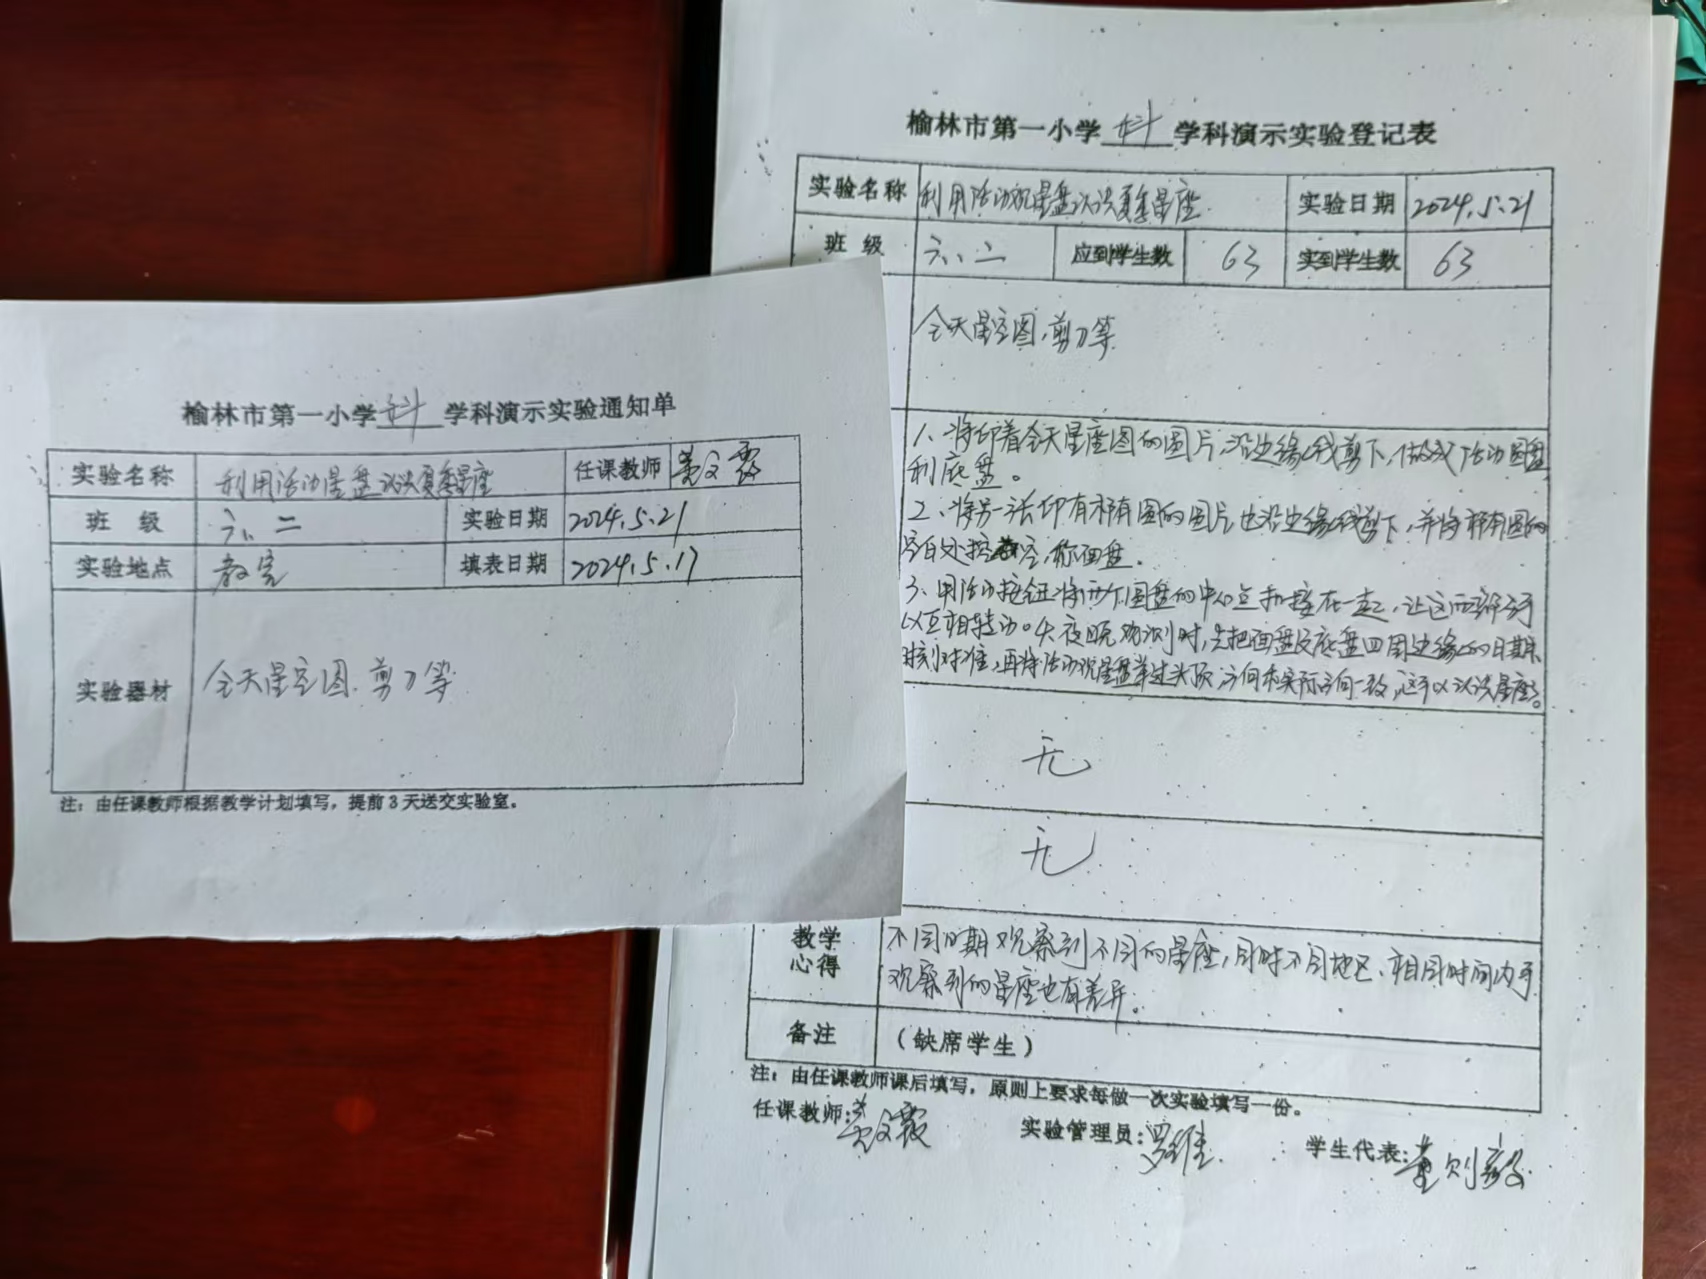 榆林市第一小学 科 学科演示实验通知单
实验名称 利用活动星盘认识夏季星座 任课教师
班 级 六、二 实验日期 2024.5.21
实验地点 教室 填表日期 2024.5.17
实验器材 全天星空图、剪刀等
注：由任课教师根据教学计划填写，提前3天送交实验室。
榆林市第一小学 科 学科演示实验登记表
实验名称 利用活动观星盘认识夏季星座 实验日期 2024.5.21
班 级 六、二 应到学生数 63 实到学生数 63
全天星空图、剪刀等
1、将印着全天星座图的图片，沿边缘线剪下，做成了活动圆盘
利底盘。
2、将另一张印有 图的图片也沿边缘线剪下，并将 图的
空白处挖空，称面盘。
3、用活动按钮将两个圆盘的中心点扣接在一起，让这两部分可
以互相转动。 夜晚观测时，先把面盘及底盘四周边缘的日期、
时刻对准，再将活动观星盘举过头顶，方向和实际方向一致，这可以认识星座。
无
无
教学
心得
不同日期观察到不同的星座，同时不同地区、相同时间内
观察到的星座也有差异。
备注 （缺席学生）
注：由任课教师课后填写，原则上要求每做一次实验填写一份。
任课教师： 实验管理员：罗维 学生代表：董则毅